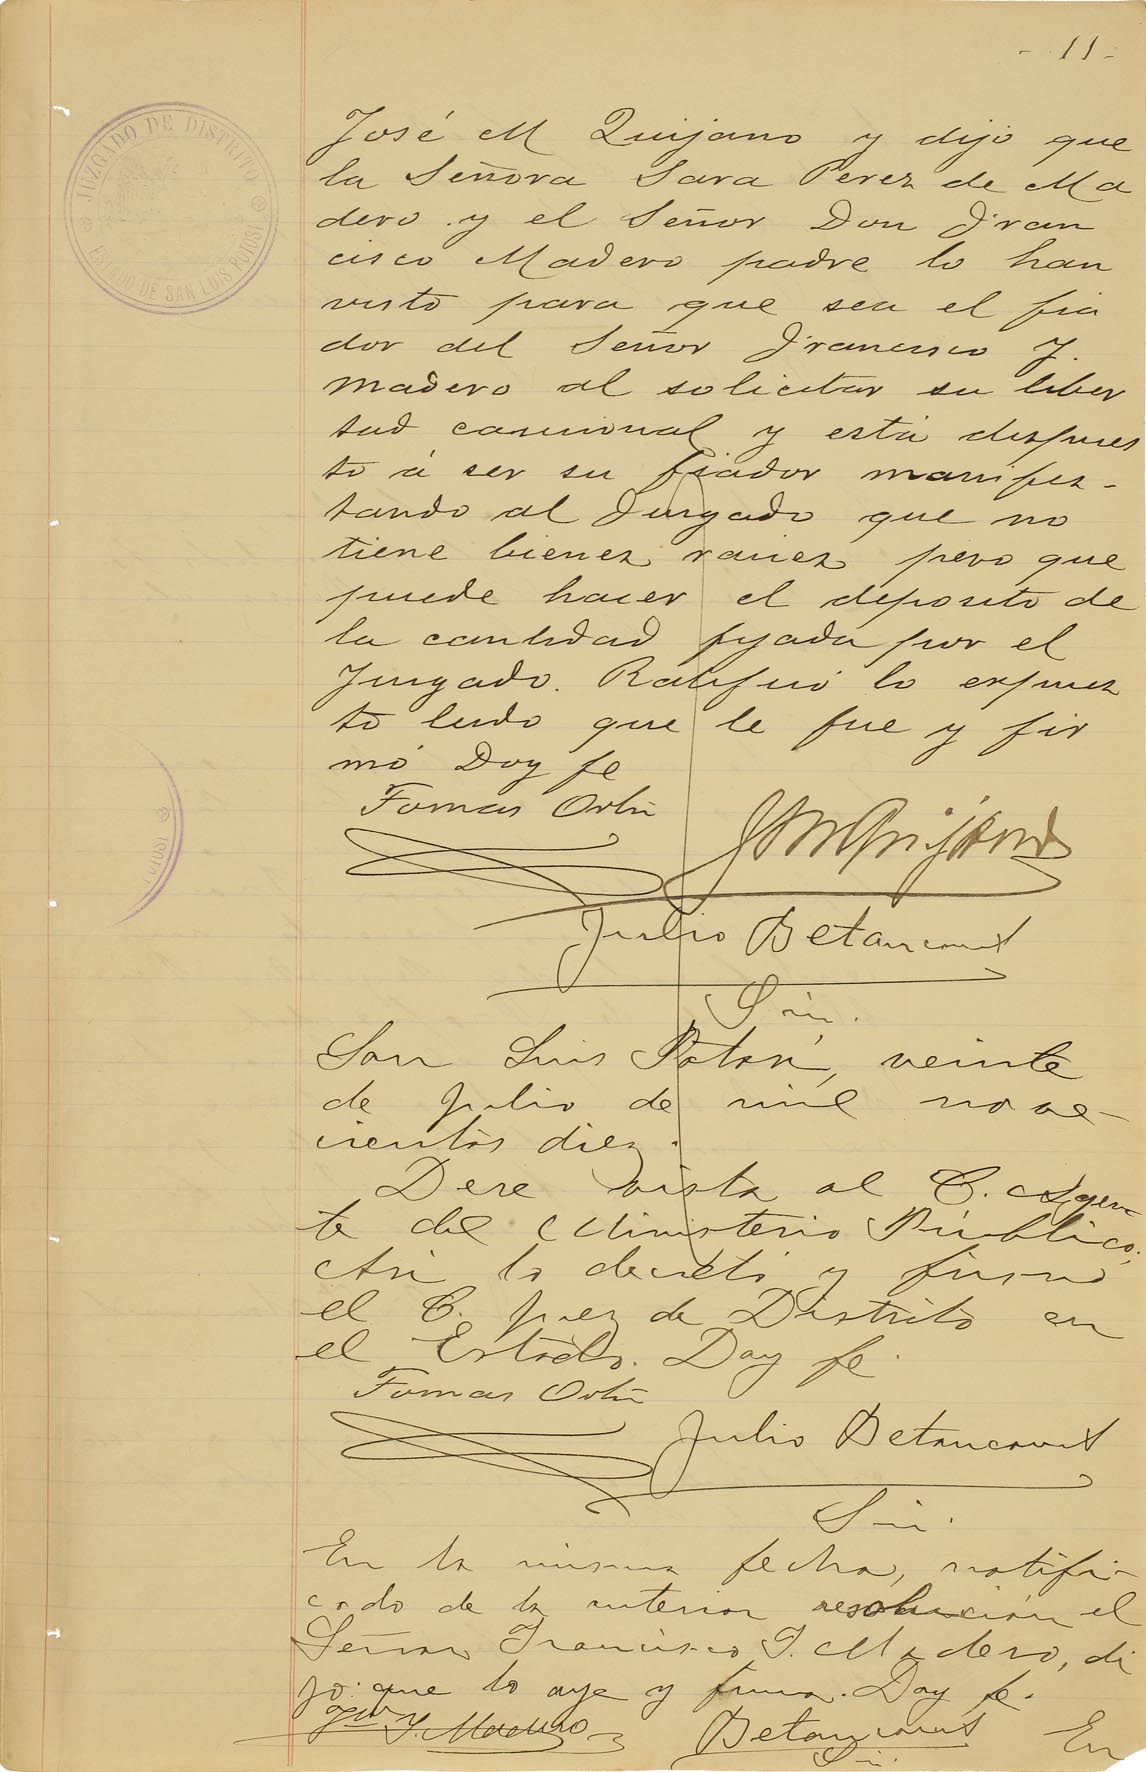 - 11 -
JUZGADO DE DISTRITO
ESTADO DE SAN LUIS POTOSI
José M Quijano y dijo que
la Señora Sara Perez de Ma
dero y el Señor Don Fran
cisco Madero padre lo han
visto para que sea el fia
dor del Señor Francisco Y.
Madero al solicitar su liber
tad caucional y está dispues
to á ser su fiador manifes-
tando al Juzgado que no
tiene bienes raices pero que
puede hacer el deposito de
la cantidad fijada por el
Juzgado. Ratificó lo expues
to leido que le fue y fir
mó Doy fe
Tomas Ortiz
JMQuijano
Julio Betancourt
Srio.
San Luis Potosí, veinte
de julio de mil nove-
cientos diez.
Dese vista al C. Agen
te del Ministerio Público;
Así lo decretó y firmó
el C. Juez de Distrito en
el Estado. Doy fe.
Tomas Ortiz
Julio Betancourt
Srio.
En la misma fecha, notifi-
cado de la anterior resolución el
Señor Francisco I. Madero, di
jo: que lo oye y firma. Doy fe.
I. Madero
Betancourt
Srio.
En